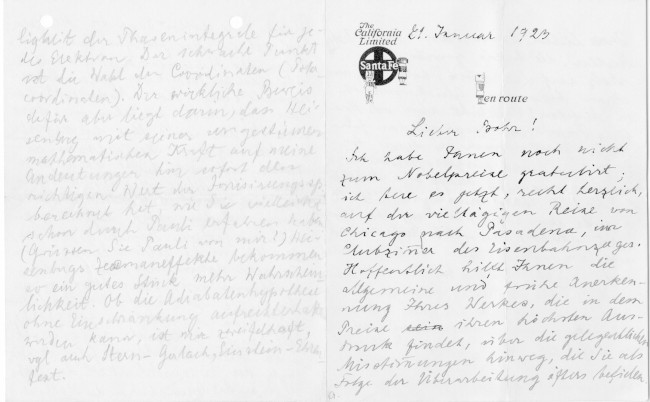 The
California
Limited
Santa Fe
en route
21. Januar 1923
Lieber Bohr!
Ich habe Ihnen noch nicht
zum Nobelpreise gratuliert;
ich tue es jetzt, recht herzlich,
auf der vieltägigen Reise von
Chicago nach Pasadena, im
Clubzimmer des Eisenbahnzuges.
Hoffentlich hilft Ihnen die
allgemeine und frohe Anerken-
nung Ihres Werkes, die in dem
Preise ihren höchsten Aus-
druck findet, über die gelegentlichen
Misstimmungen hinweg, die Sie als
Folge der Überarbeitung öfters befielen.
der Phasenintegrale für je-
des Elektron. Der schwache Punkt
ist die Wahl der Coordinaten (
coordinaten). Der wirkliche Beweis
dafür aber liegt darin, dass Hei-
senberg mit seiner ungestümen
mathematischen Kraft auf meine
Andeutungen hin sofort den
richtigen Wert der Ionisierungssp.
berechnet hat, wie Sie vielleicht
schon durch Pauli erfahren
(Grüssen Sie Pauli von mir!)
senbergs Zeemaneffekte bekommen
so ein gutes Stück mehr Wahrschein-
lichkeit. Ob die Adiabatenhypothese
ohne Einschränkung aufrechterhalten
werden kann, ist mir zweifelhaft,
vgl. auch Stern-Gerlach, Einstein-Ehren-
fest.